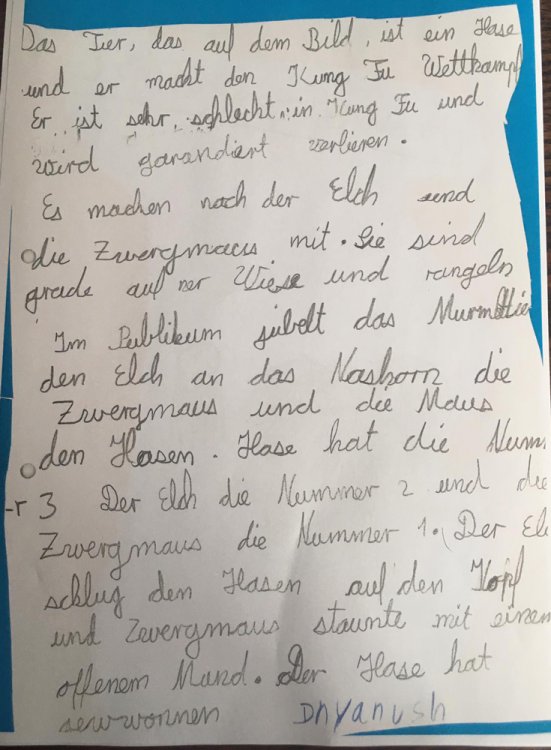 Das Tier, das auf dem Bild, ist ein Hase
und er macht den Kung Fu Wettkampf
Er ist sehr schlecht in Kung Fu und
wird garandiert verlieren.
Es machen noch der Elch und
die Zwergmaus mit. Sie sind
grade auf ner Wiese und rangeln
Im Publikum jubelt das Murmeltie
den Elch an das Nashorn die
Zwergmaus und die Maus
den Hasen. Hase hat die Num
-r 3 Der Elch die Nummer 2 und die
Zwergmaus die Nummer 1. Der El
schlug den Hasen auf den Kopf
und Zwergmaus staunte mit einem
offenem Mund. Der Hase hat
Dhyanush